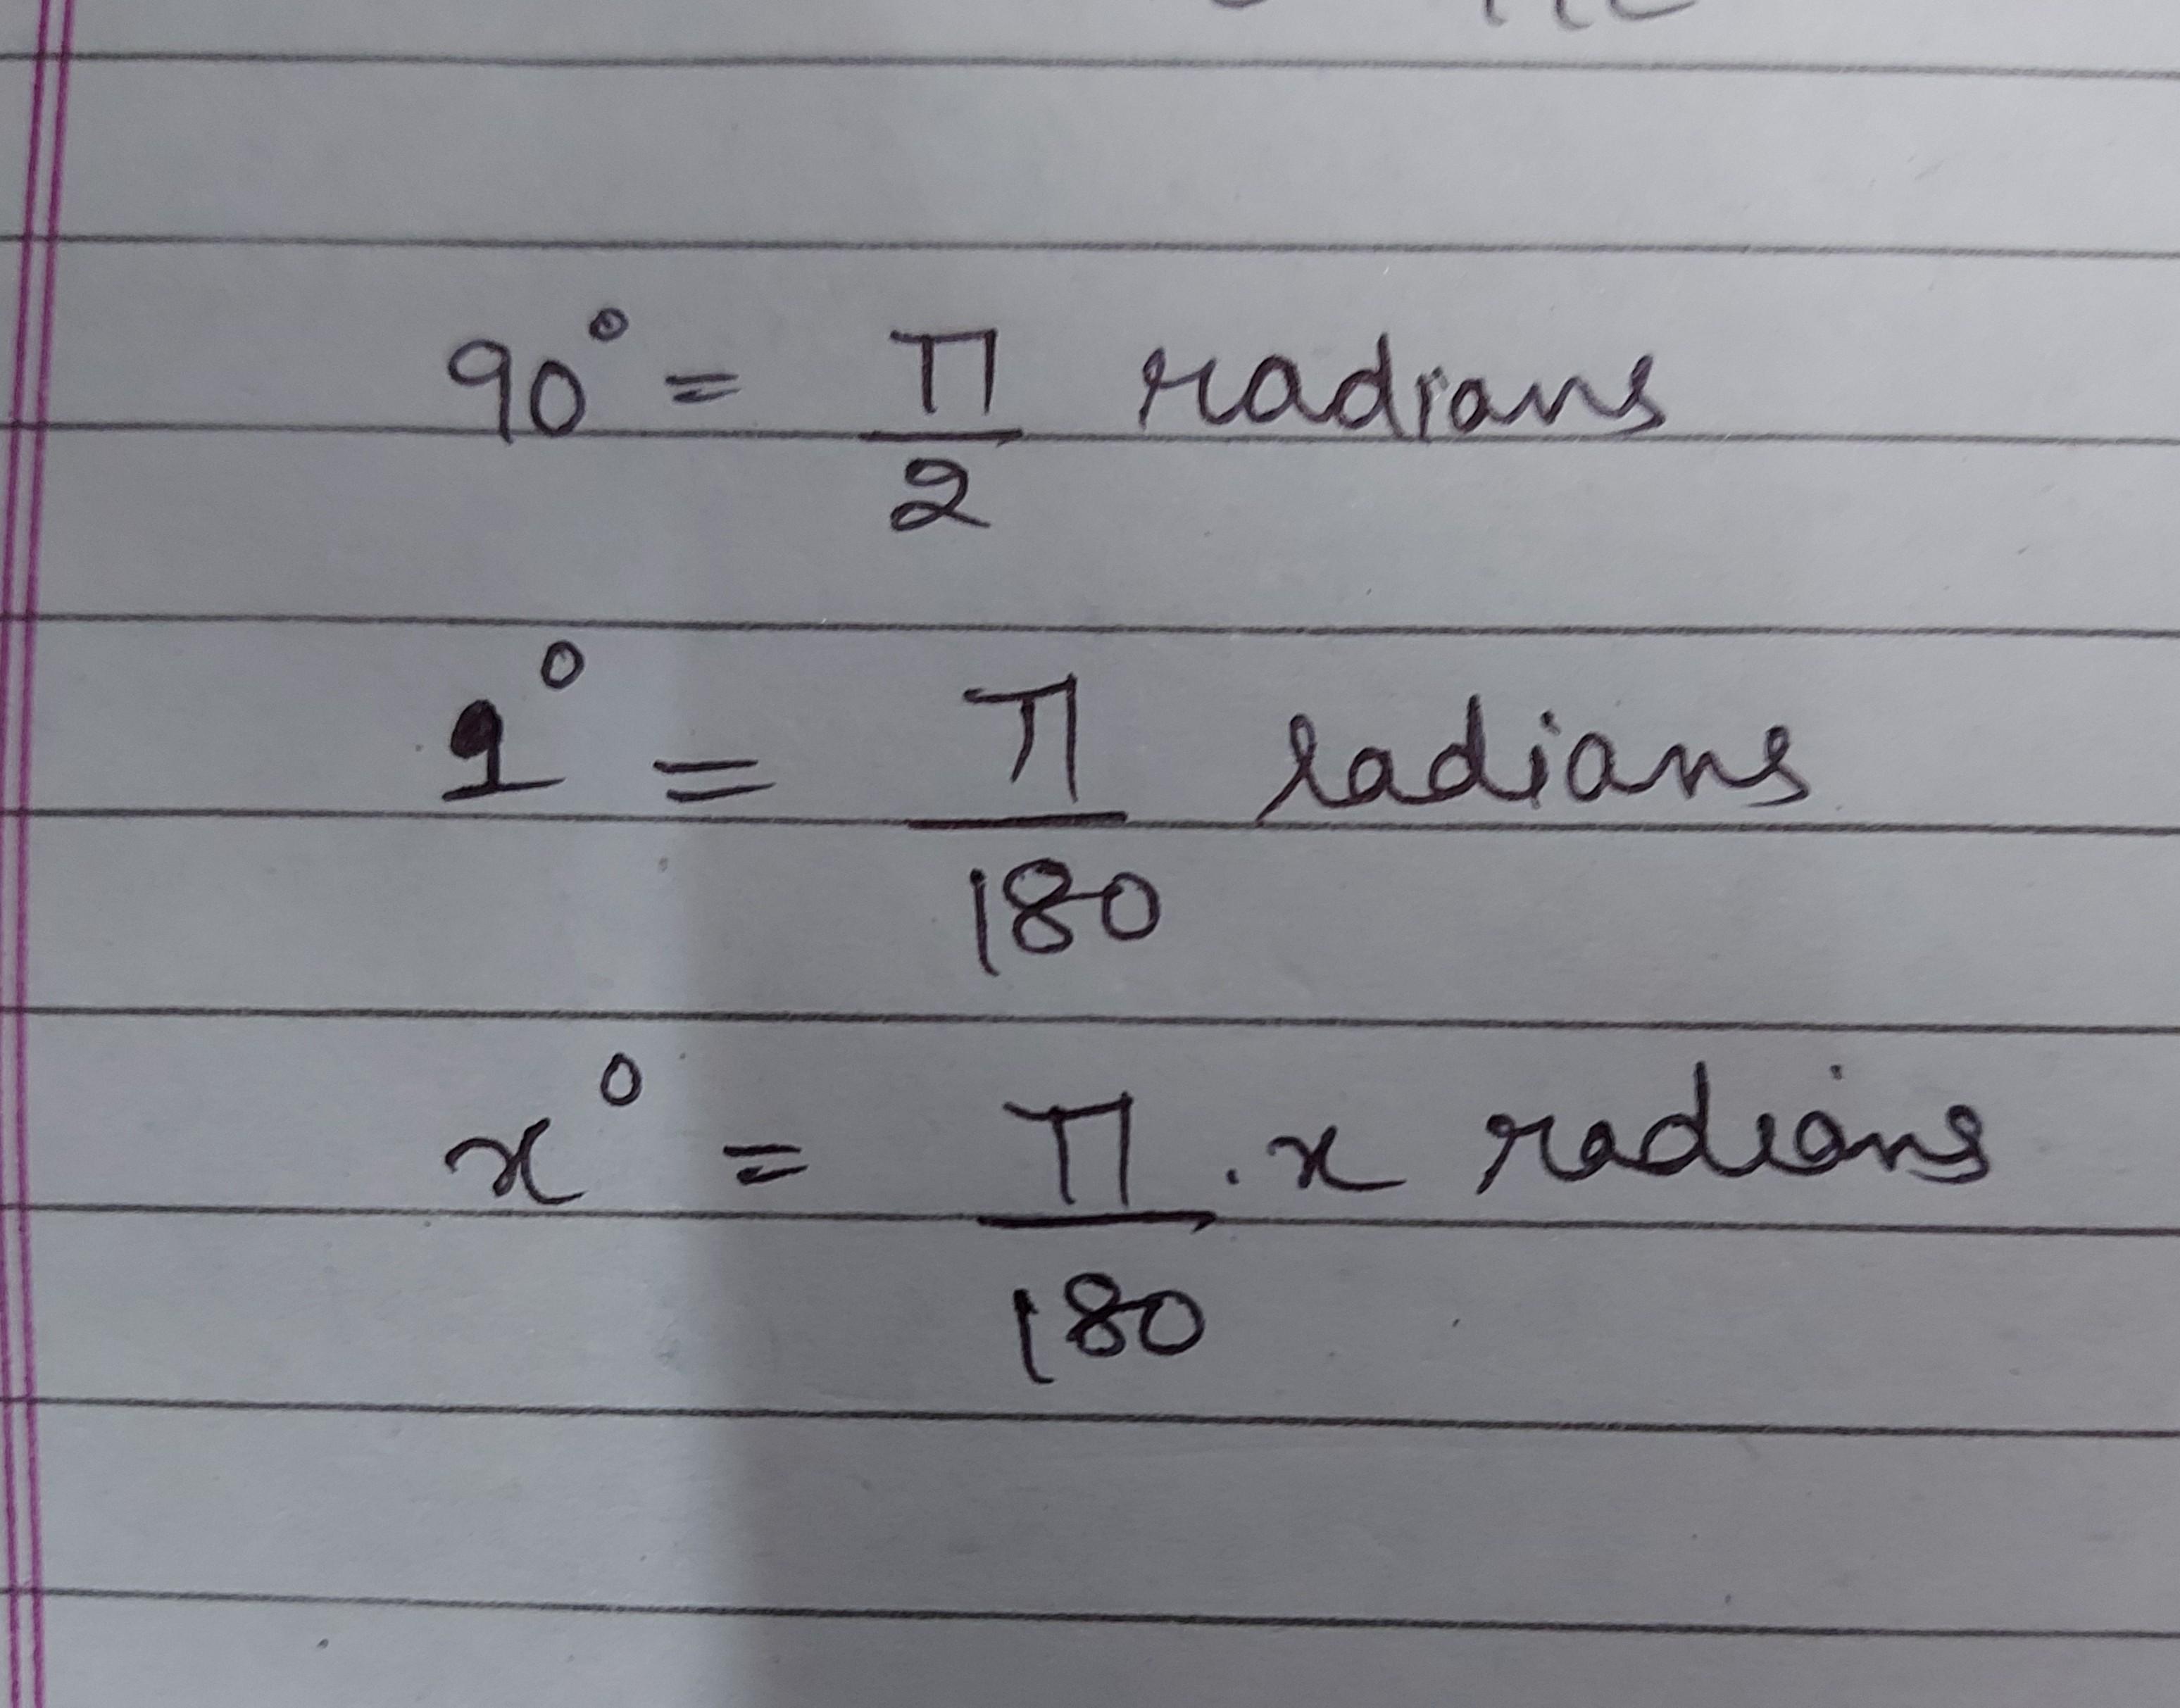 90° = π/2 radians
1° = π/180 radians
x° = π/180 . x radians